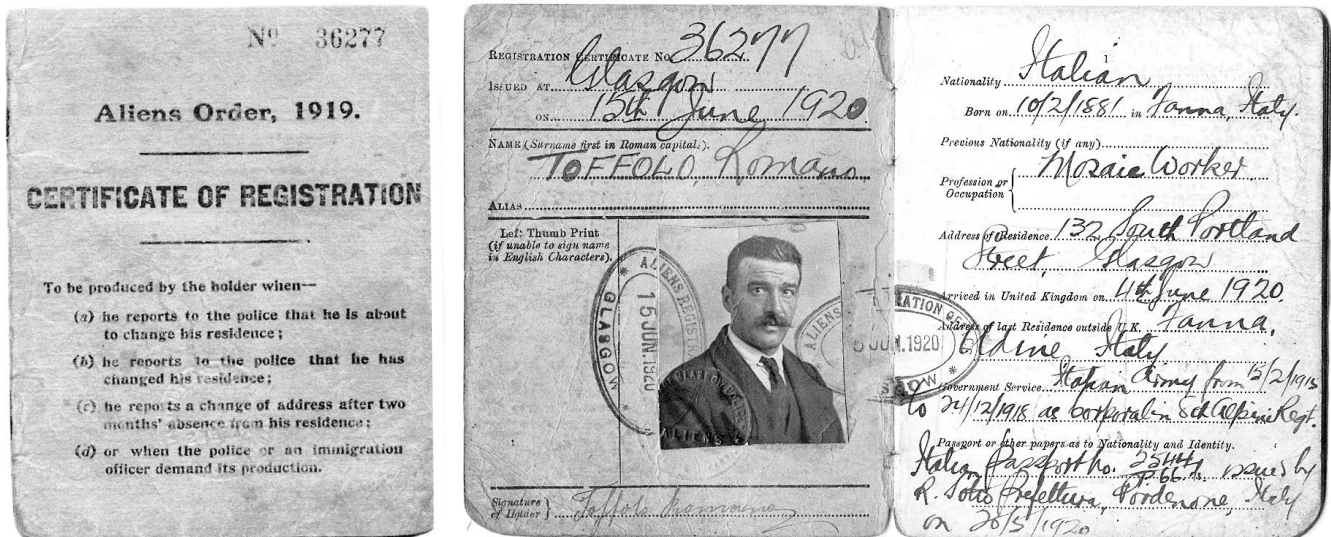 Nº 36277
Aliens Order, 1919.
CERTIFICATE OF REGISTRATION
To be produced by the holder when—
(a) he reports to the police that he is about
to change his residence;
(b) he reports to the police that he has
changed his residence;
(c) he reports a change of address after two
months' absence from his residence;
(d) or when the police or an immigration
officer demand its production.
REGISTRATION CERTIFICATE No. 36277
ISSUED AT Glasgow
ON 15th June 1920
NAME (Surname first in Roman capitals).
TOFFOLO, Romano
ALIAS
Left Thumb Print
(if unable to sign name
in English Characters).
ALIENS REGISTRATION
GLASGOW
15 JUN. 1920
ALIENS
Signature
of Holder } Toffolo Romano
Nationality Italian
Born on 10/2/1881 in Fanna, Italy.
Previous Nationality (if any)
Profession or
Occupation { Mosaic Worker
Address of Residence 132 South Portland
Street, Glasgow
Arrived in United Kingdom on 4th June 1920.
Address of last Residence outside U.K. Fanna,
Udine Italy
ALIENS
JUN. 1920
Government Service Italian Army from 15/2/1915
to 24/12/1918 as Corporal in 8th Alpini Regt.
Passport or other papers as to Nationality and Identity.
Italian Passport no. issued by
R. Sotto Prefettura, Pordenone, Italy
on 20/5/1920